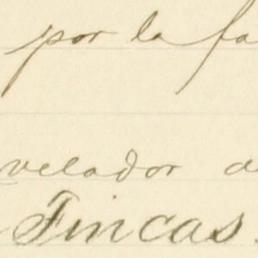 por la fa
velador d
Fincas.